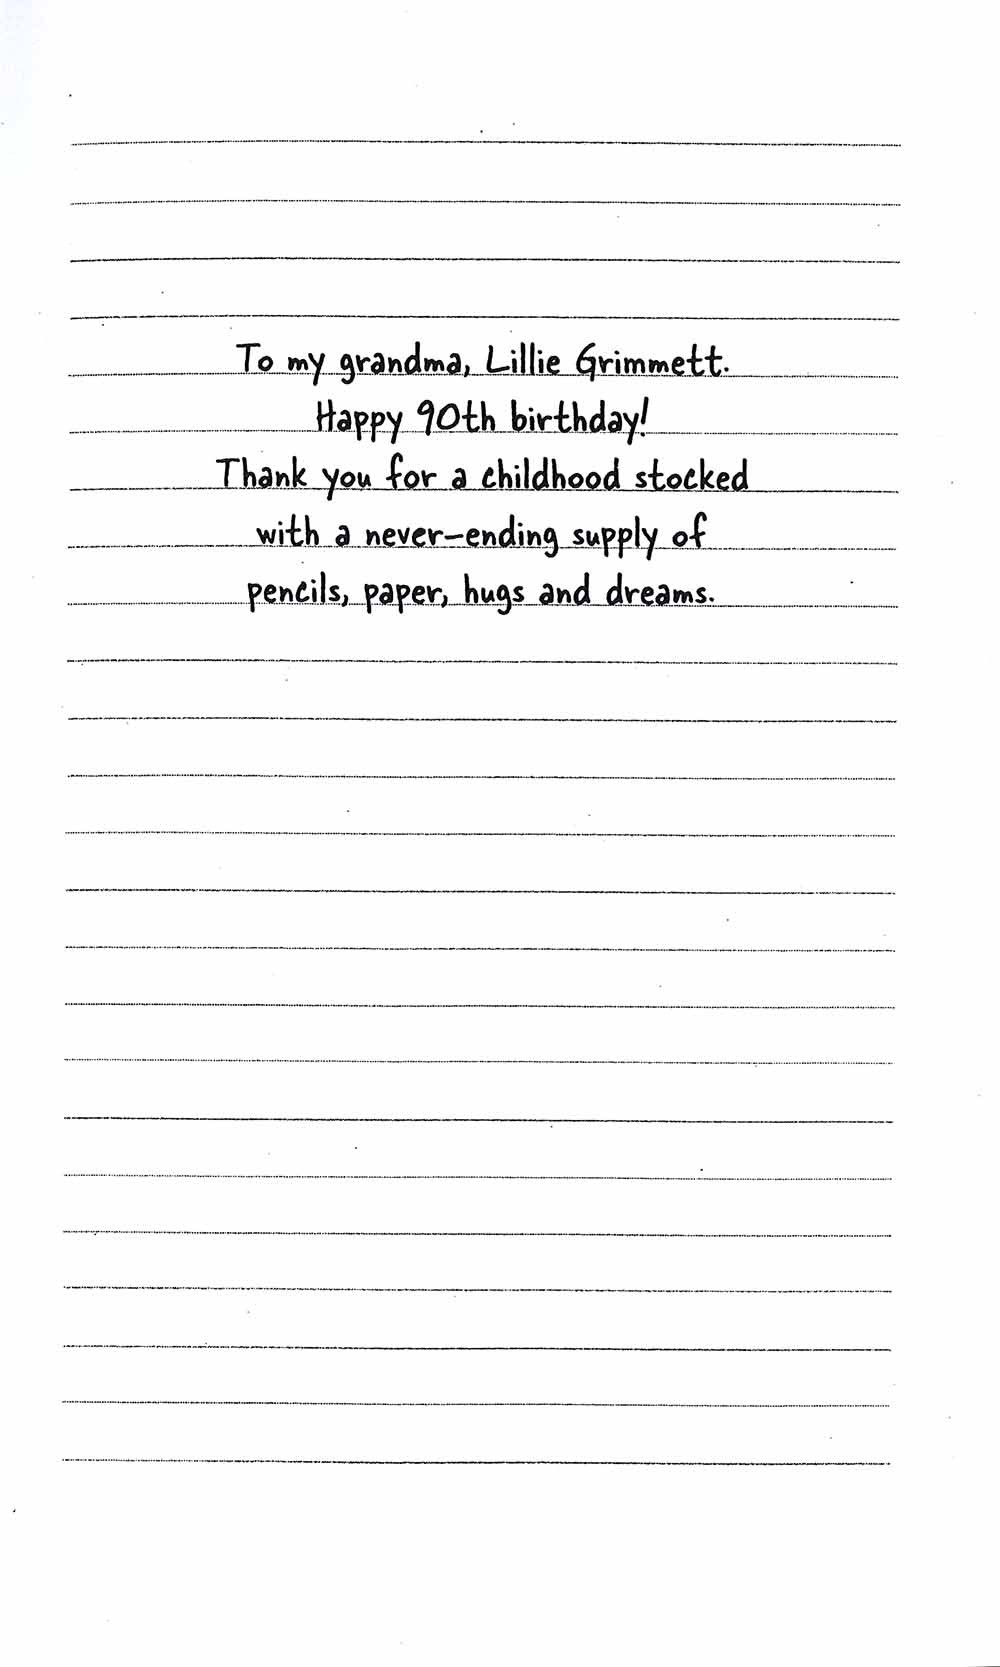 To my grandma, Lillie Grimmett.
Happy 90th birthday!
Thank you for a childhood stocked
with a never-ending supply of
pencils, paper, hugs and dreams.